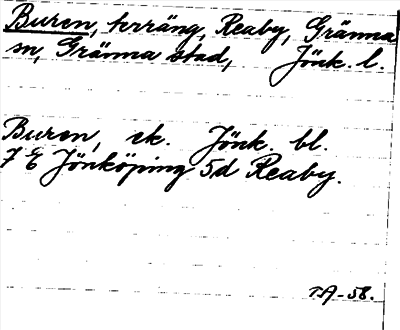 Buren, terräng, Reaby, Gränna
sn, Gränna stad, Jönk. l.
Buren, ek. Jönk. bl.
7 E Jönköping 5d Reaby.
T.A-58.